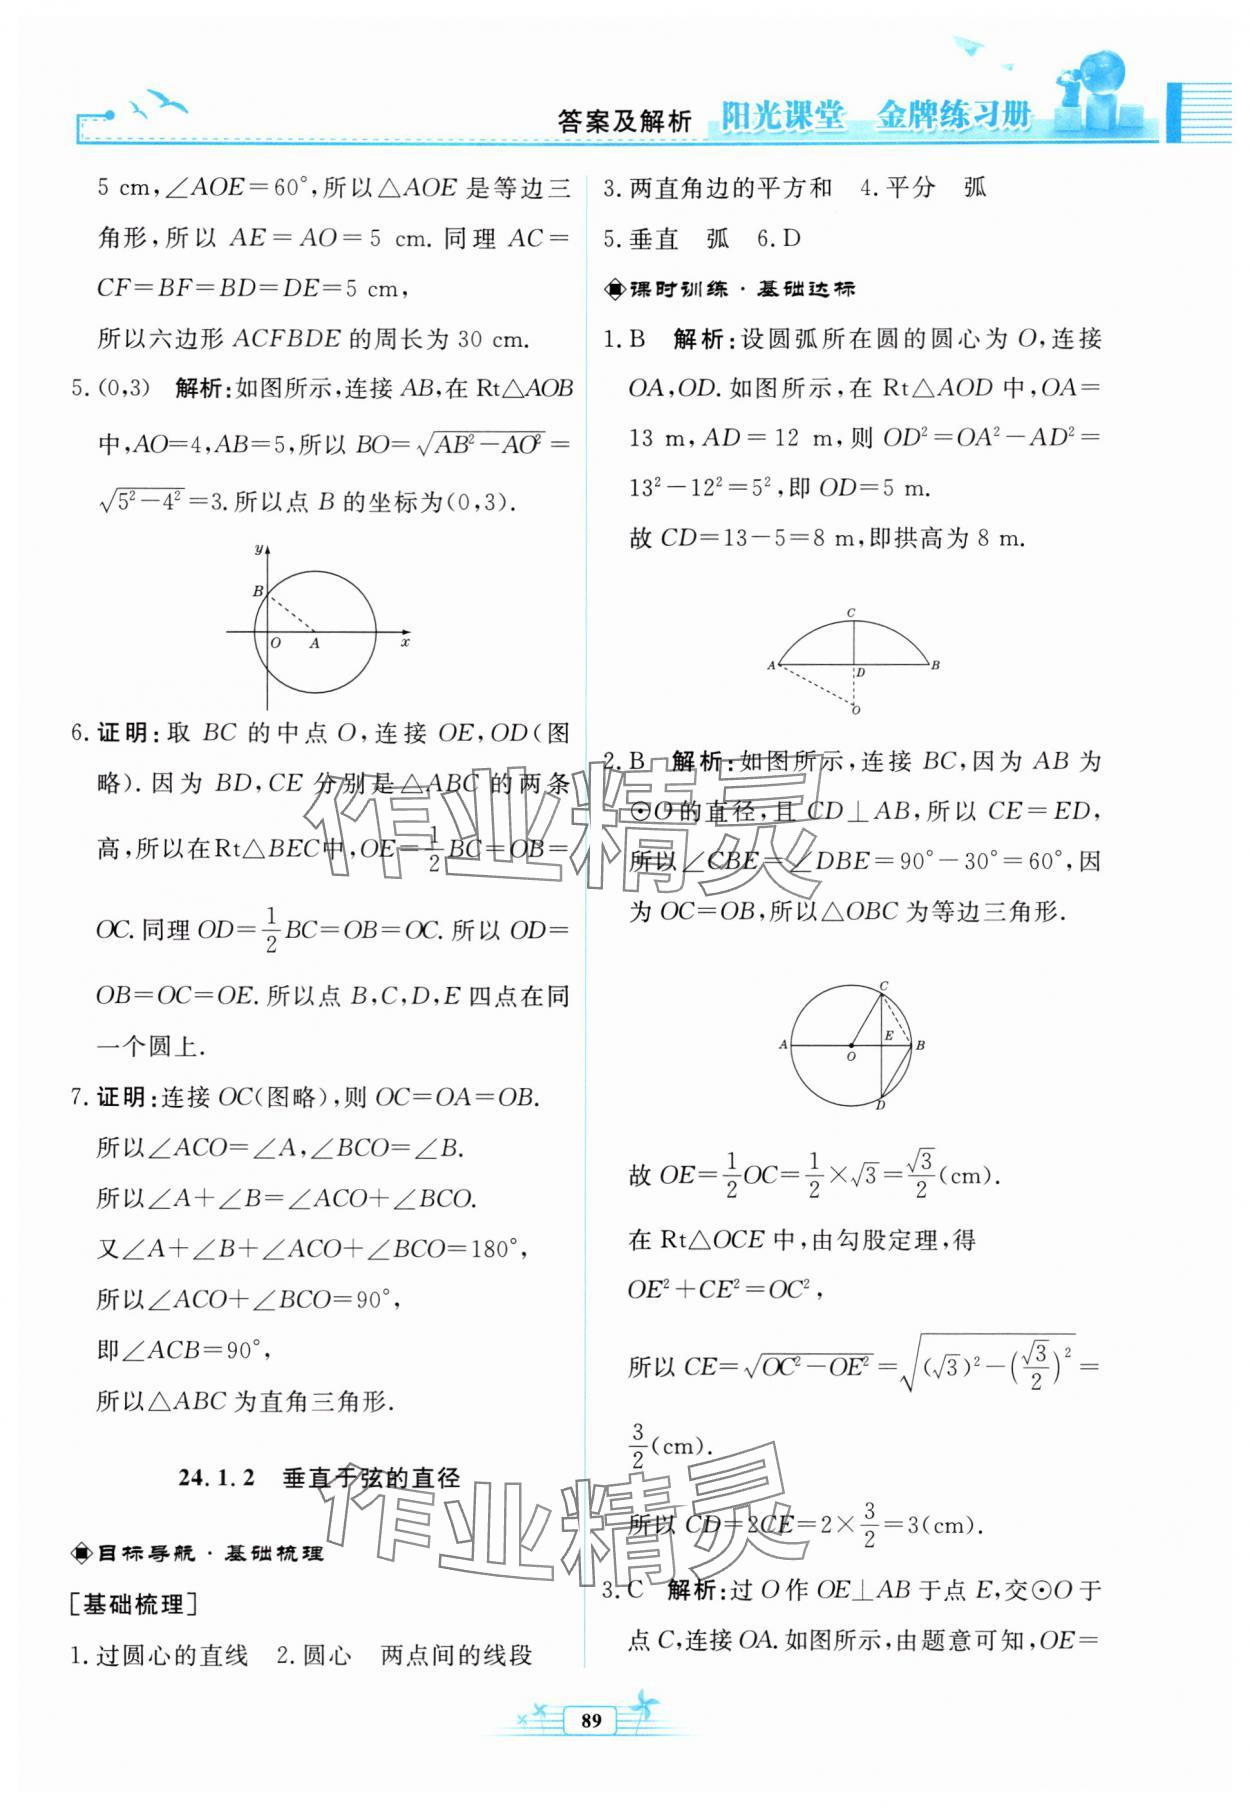 答案及解析 阳光课堂 金牌练习册
5 cm,∠AOE=60°,所以△AOE 是等边三
角形,所以 AE=AO=5 cm. 同理 AC=
CF=BF=BD=DE=5 cm,
所以六边形 ACFBDE 的周长为 30 cm.
5. (0,3) 解析:如图所示,连接 AB,在 Rt△AOB
中,AO=4,AB=5,所以 BO=√(AB²-AO²)=
√(5²-4²)=3.所以点 B 的坐标为(0,3).
y
B
O A x
6. 证明:取 BC 的中点 O,连接 OE,OD(图
略). 因为 BD,CE 分别是△ABC 的两条
高,所以在Rt△BEC中,OE=1/2BC=OB=
OC.同理 OD=1/2BC=OB=OC. 所以 OD=
OB=OC=OE.所以点 B,C,D,E 四点在同
一个圆上.
7. 证明:连接 OC(图略),则 OC=OA=OB.
所以∠ACO=∠A,∠BCO=∠B.
所以∠A+∠B=∠ACO+∠BCO.
又∠A+∠B+∠ACO+∠BCO=180°,
所以∠ACO+∠BCO=90°,
即∠ACB=90°,
所以△ABC 为直角三角形.
24.1.2 垂直于弦的直径
目标导航·基础梳理
[基础梳理]
1. 过圆心的直线 2. 圆心 两点间的线段
3. 两直角边的平方和 4. 平分 弧
5. 垂直 弧 6. D
课时训练·基础达标
1. B 解析:设圆弧所在圆的圆心为 O,连接
OA,OD. 如图所示,在 Rt△AOD 中,OA=
13 m,AD=12 m,则 OD²=OA²-AD²=
13²-12²=5²,即 OD=5 m.
故 CD=13-5=8 m,即拱高为 8 m.
C
A D B
O
2. B 解析:如图所示,连接 BC,因为 AB 为
⊙O 的直径,且 CD⊥AB,所以 CE=ED,
所以∠CBE=∠DBE=90°-30°=60°,因
为 OC=OB,所以△OBC 为等边三角形.
C
A O E B
D
故 OE=1/2OC=1/2×√3=√3/2(cm).
在 Rt△OCE 中,由勾股定理,得
OE²+CE²=OC²,
所以 CE=√(OC²-OE²)=√((√3)²-(√3/2)²)=
3/2(cm).
所以 CD=2CE=2×3/2=3(cm).
3. C 解析:过 O 作 OE⊥AB 于点 E,交⊙O 于
点 C,连接 OA. 如图所示,由题意可知,OE=
89
作业精灵
作业精灵